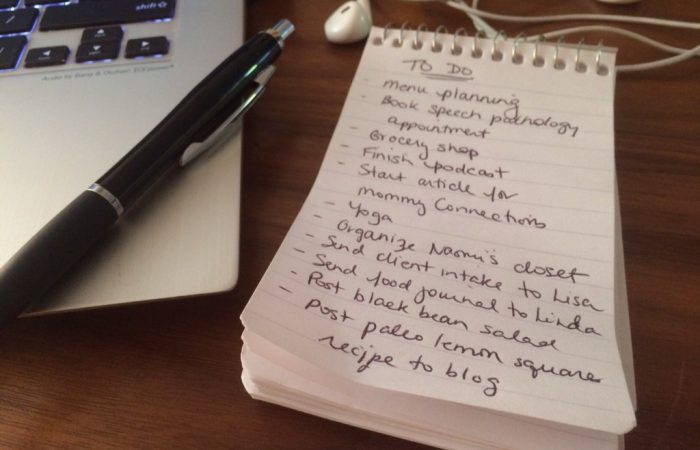 shift
Audio by Bang & Olufsen
TO DO
- Menu planning
- Book speech pathology
appointment
- Grocery shop
- Finish podcast
- Start article for
mommy Connections
- Yoga
- Organize Naomi's closet
- Send client intake to Lisa
- Send food journal to Linda
- Post black bean salad
- Post paleo lemon square
recipe to blog